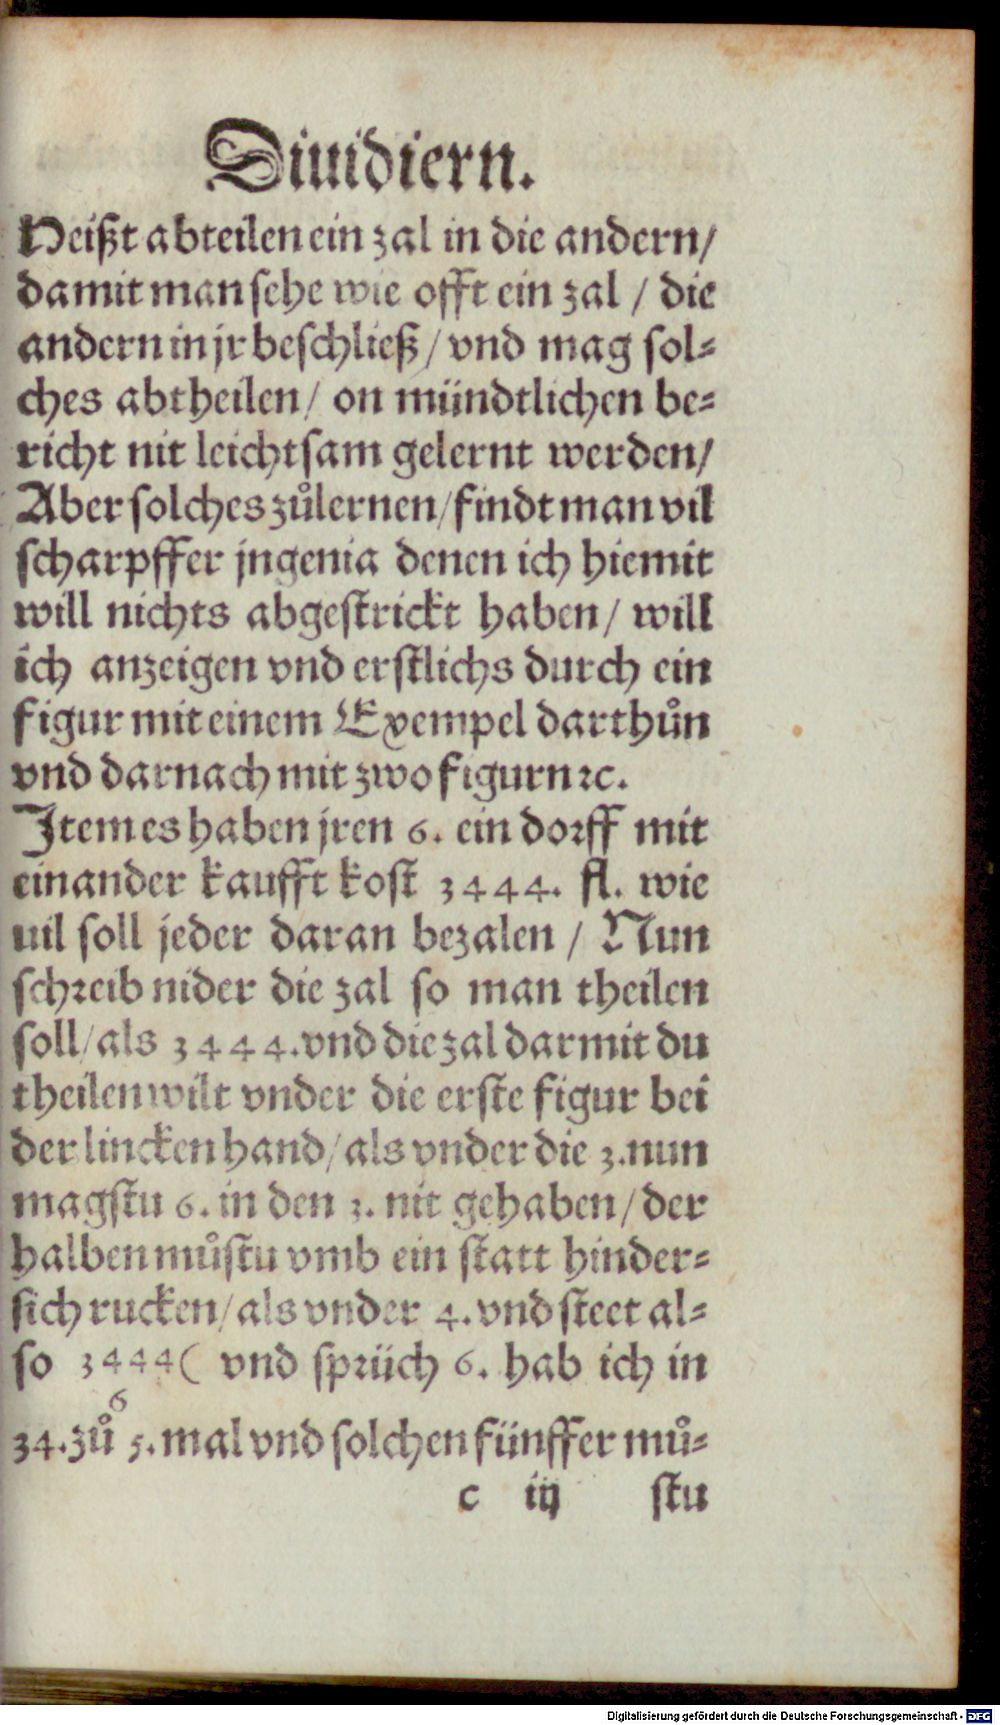 Diuidiern.
Heißt abteilen ein zal in die andern/
damit man sehe wie offt ein zal / die
andern in jr beschließ / vnd mag sol⸗
ches abtheilen / on mündtlichen be⸗
richt nit leichtsam gelernt werden/
Aber solches zůlernen / findt man vil
scharpffer jngenia denen ich hiemit
will nichts abgestrickt haben / will
ich anzeigen vnd erstlichs durch ein
figur mit einem Exempel darthůn
vnd darnach mit zwo figurn ꝛc.
Item es haben jren 6. ein dorff mit
einander kaufft kost 3444. fl. wie
uil soll jeder daran bezalen / Nun
schreib nider die zal so man theilen
soll / als 3444. vnd die zal darmit du
theilen wilt vnder die erste figur bei
der lincken hand / als vnder die 3. nun
magstu 6. in den 3. nit gehaben / der
halben můstu vmb ein statt hinder⸗
sich rucken / als vnder 4. vnd steet al⸗
so 3444( vnd sprüch 6. hab ich in
6
34. zů 5. mal vnd solchen fünffer mů⸗
c iij stu
Digitalisierung gefördert durch die Deutsche Forschungsgemeinschaft - DFG